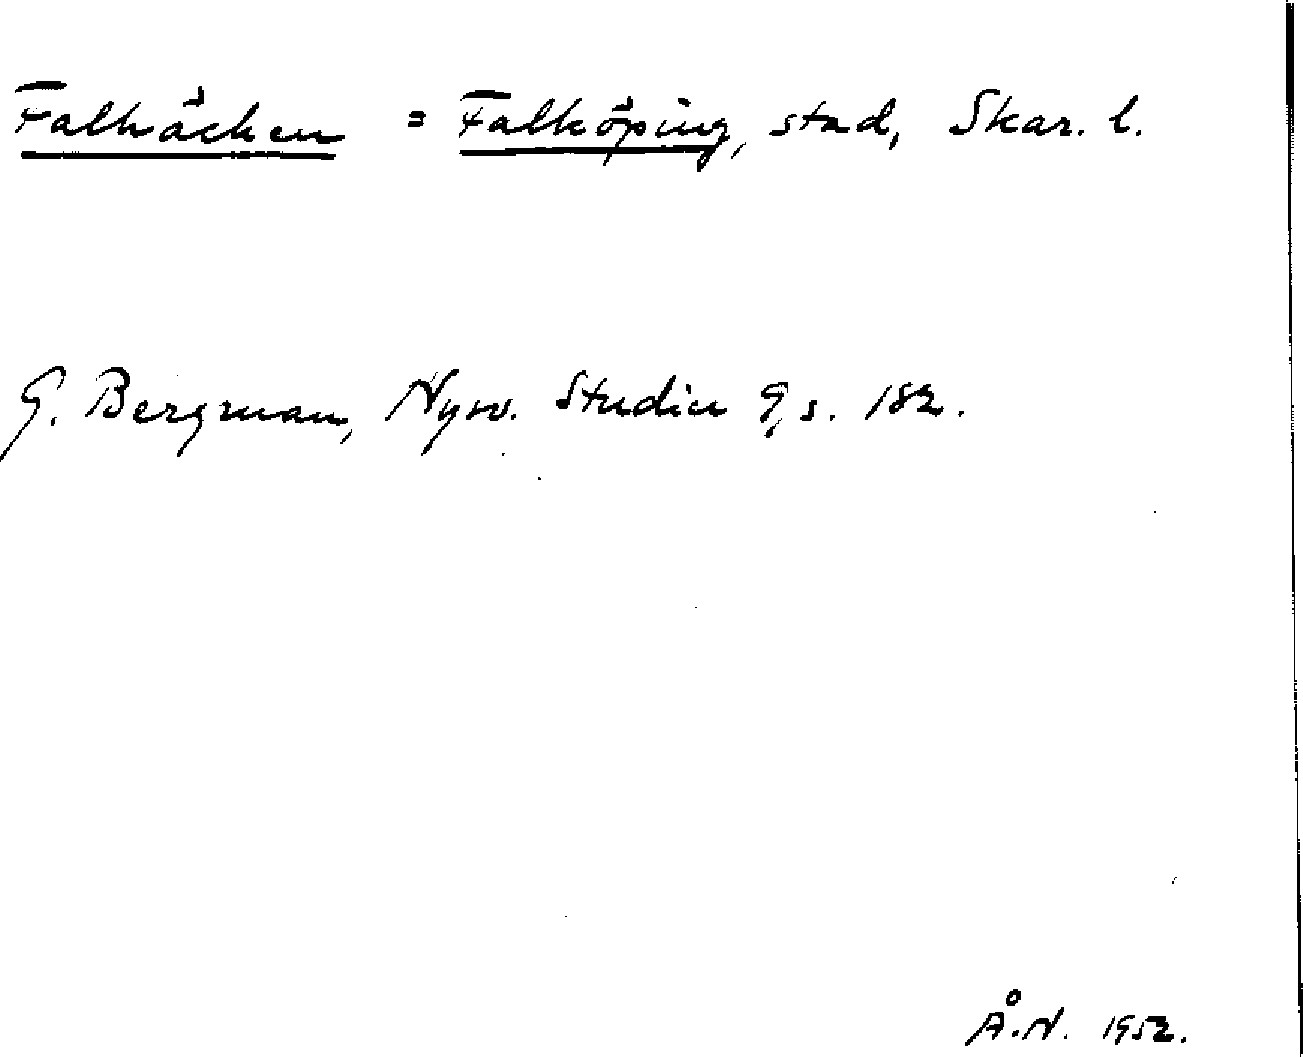 Falkäcken = Falköping, stad, Skar. l.
G. Bergman, Nysv. Studier 9, s. 182.
Å.N. 1952.